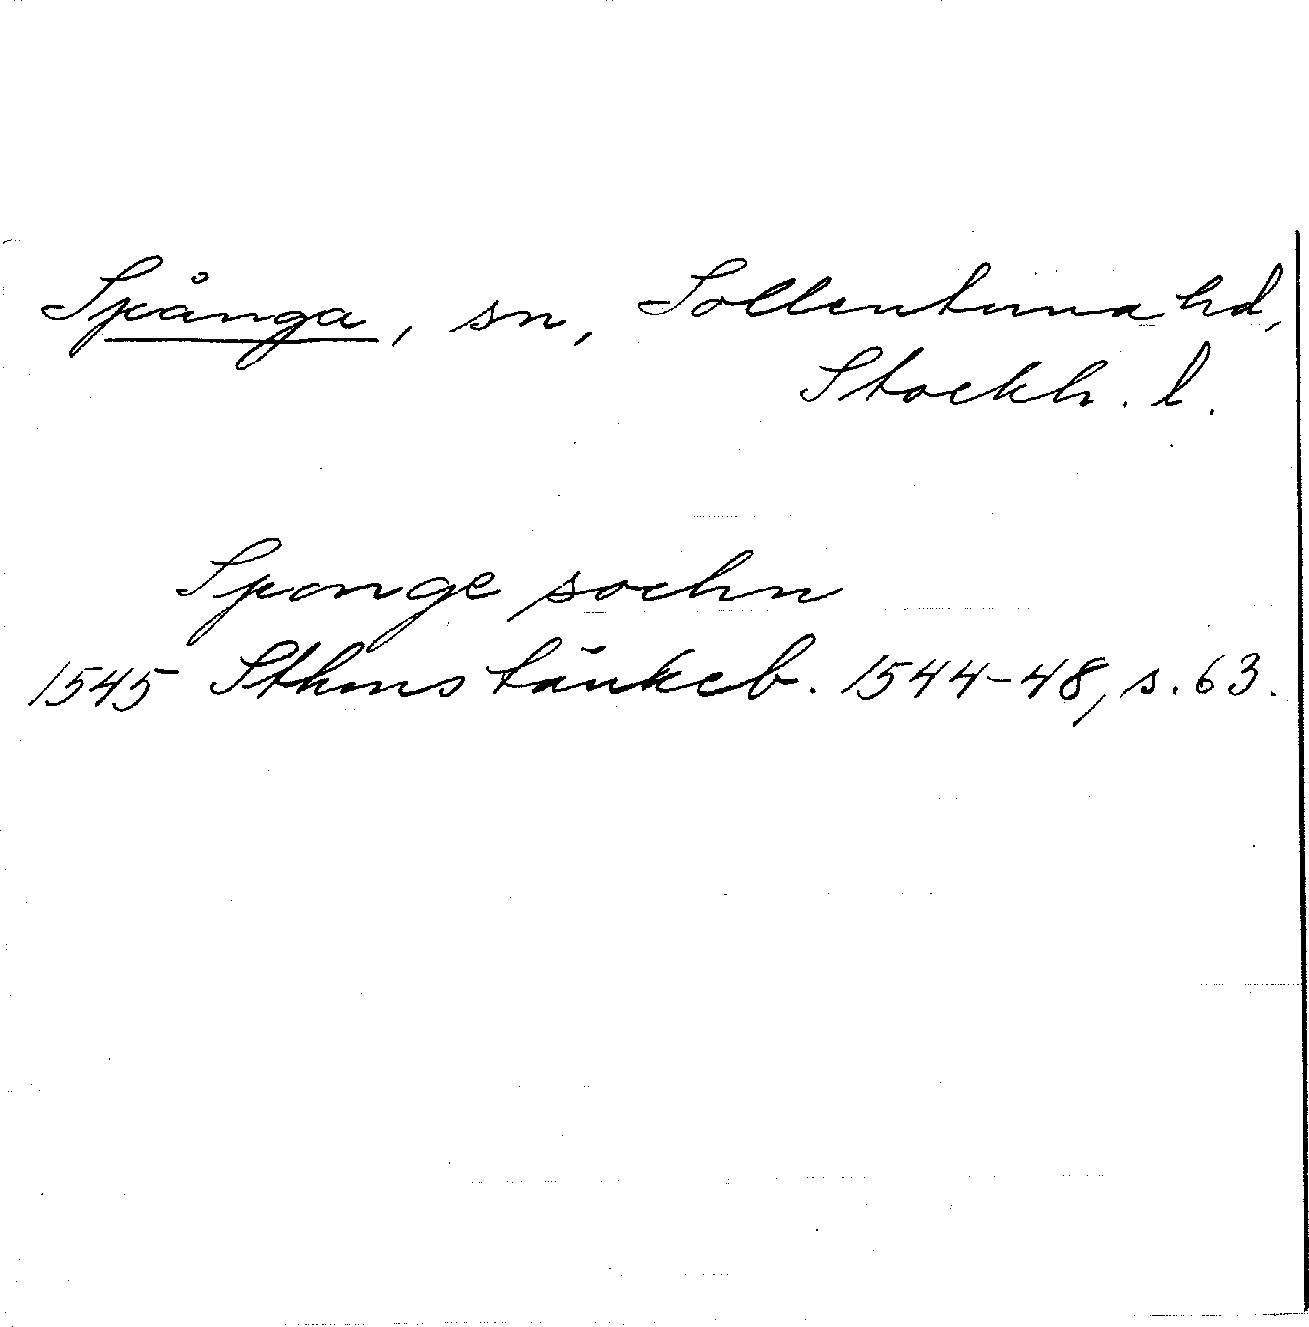 Spånga, sn, Sollentuna hd,
Stockh. l.
Sponge sochn
1545 Sthms tänkeb. 1544-48, s. 63.